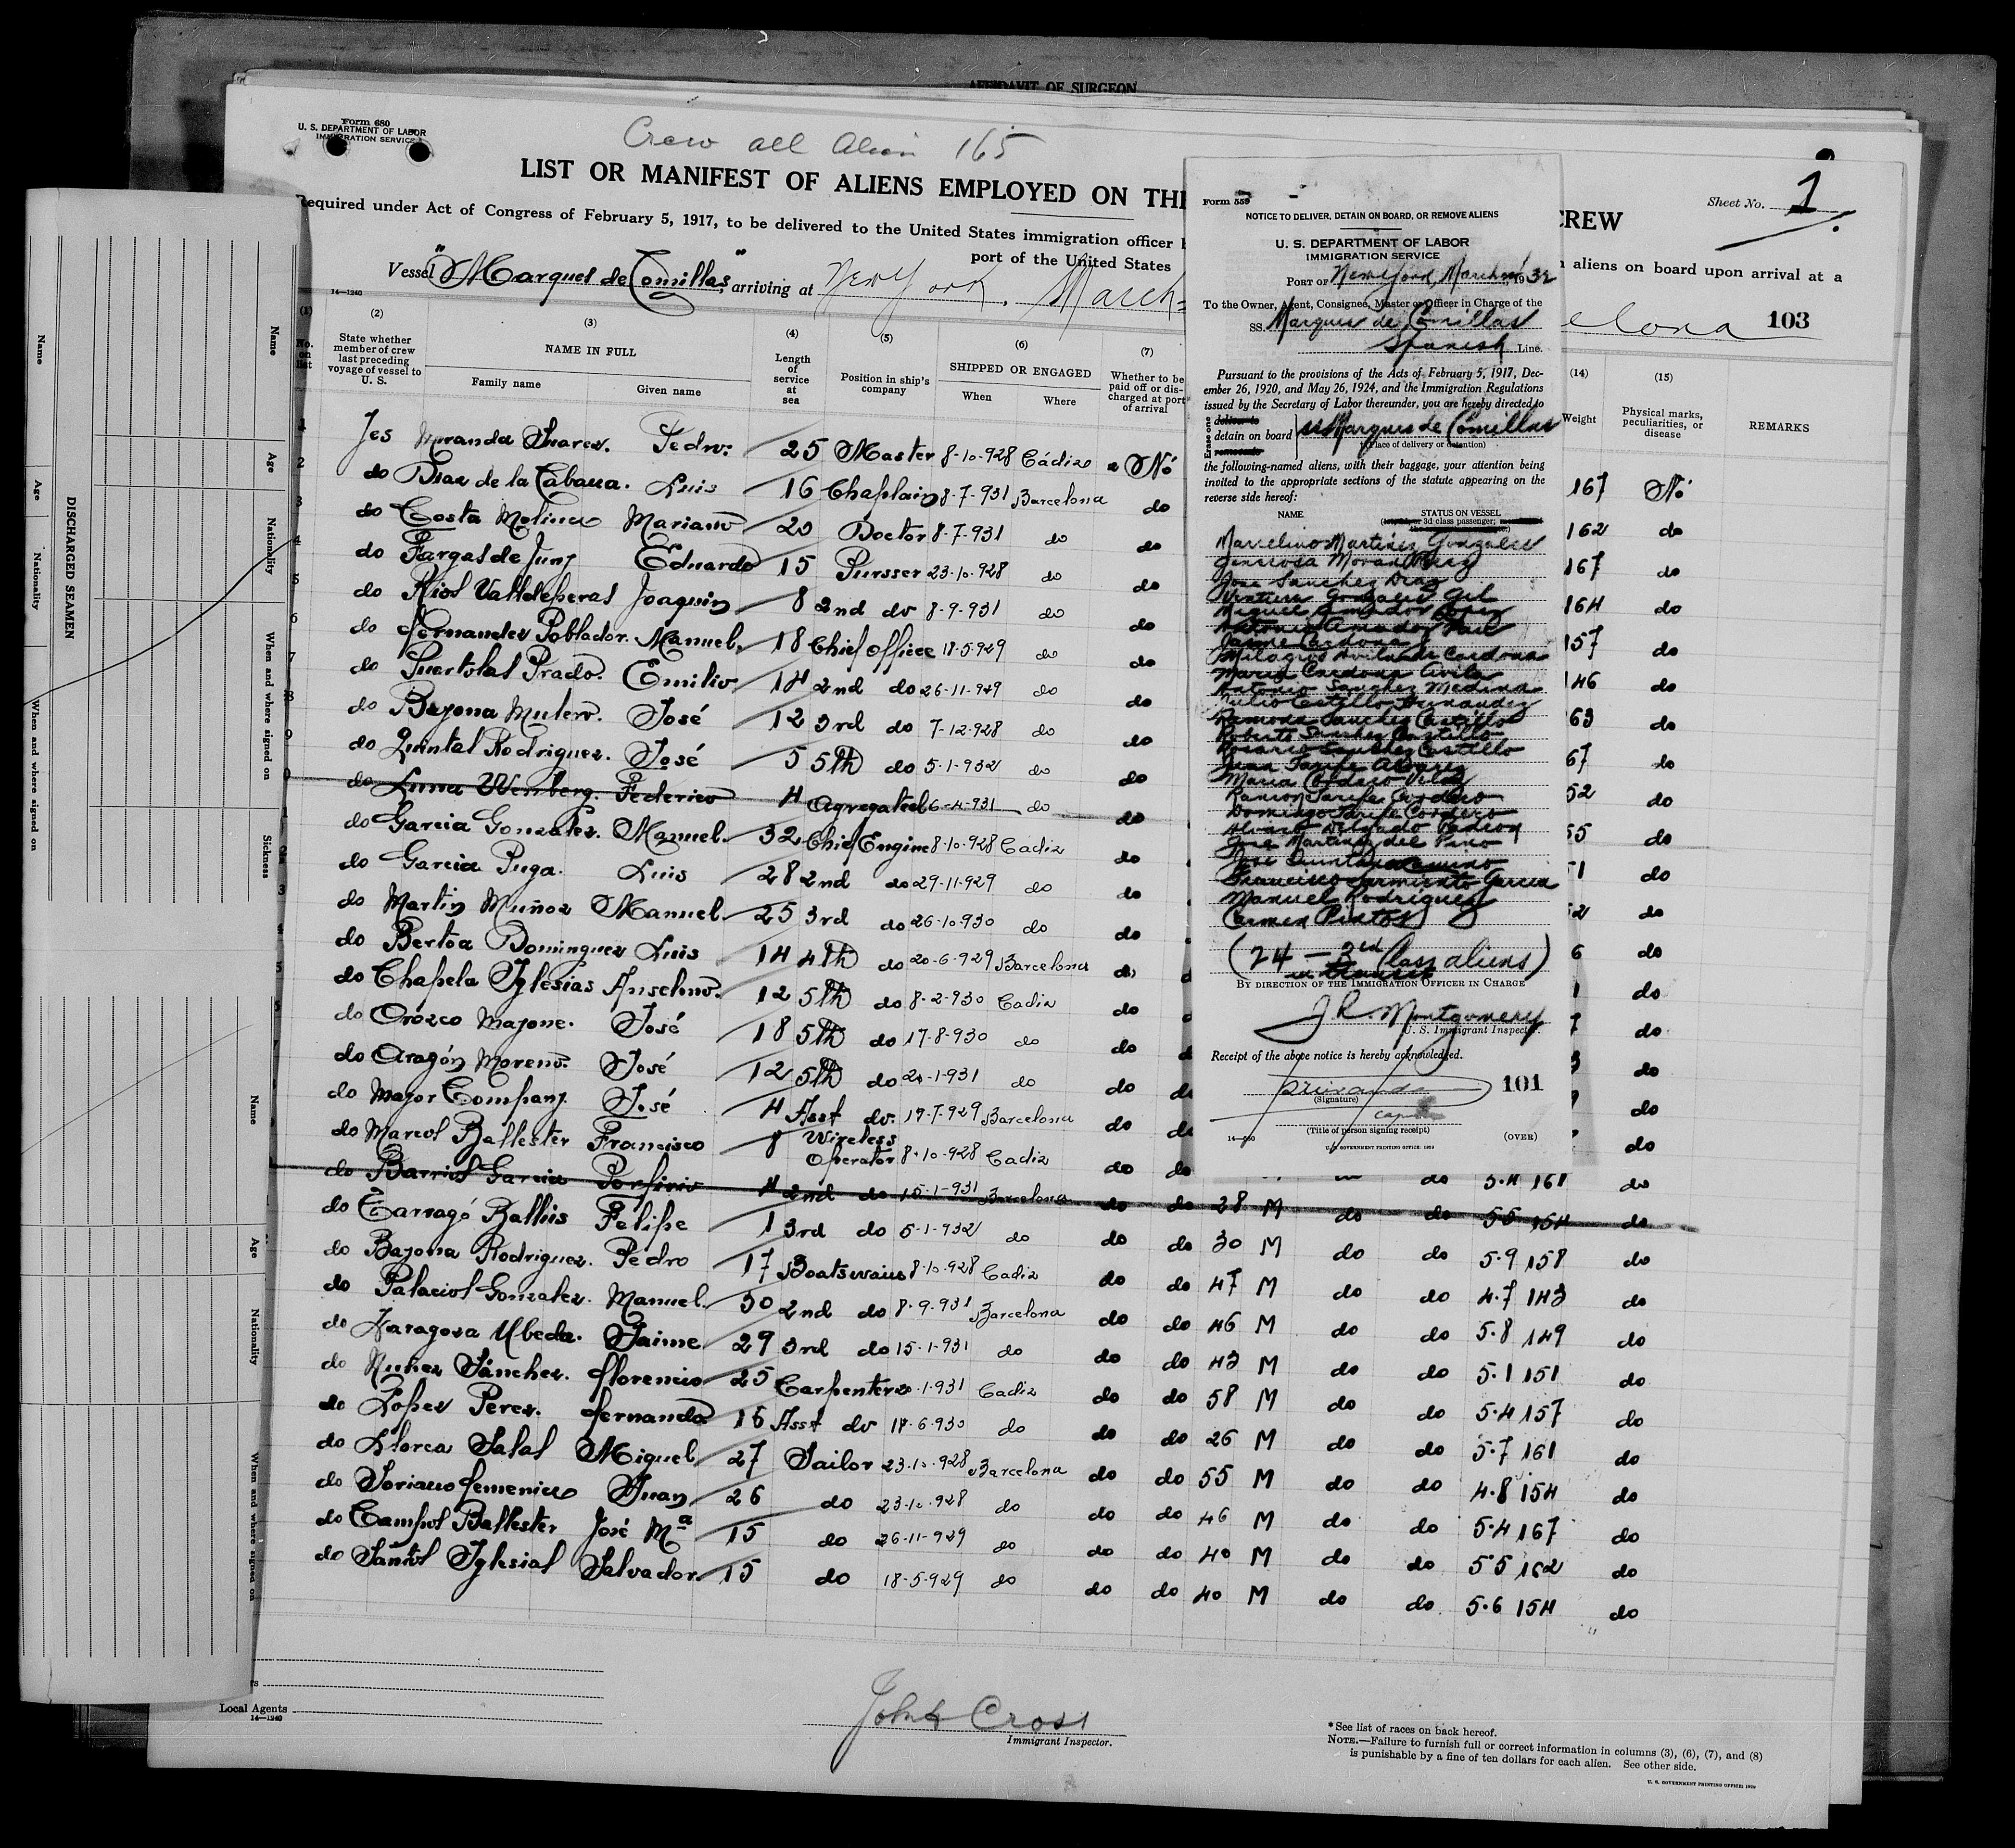 AFFIDAVIT OF SURGEON
Form 680
U. S. DEPARTMENT OF LABOR
IMMIGRATION SERVICE
Crew all Alien 165
LIST OR MANIFEST OF ALIENS EMPLOYED ON THE
CREW
Sheet No. 1
Required under Act of Congress of February 5, 1917, to be delivered to the United States immigration officer
aliens on board upon arrival at a
port of the United States
Vessel "Marques de Comillas", arriving at New York. March
elona 103
14—1240
(1) No. on list
(2) State whether member of crew last preceding voyage of vessel to U. S.
(3) NAME IN FULL
Family name Given name
(4) Length of service at sea
(5) Position in ship's company
(6) SHIPPED OR ENGAGED
When Where
(7) Whether to be paid off or discharged at port of arrival
(14) Weight
(15) Physical marks, peculiarities, or disease
REMARKS
1 Yes Miranda Suarez. Pedro. 25 Master 8-10-928 Cádiz No 167 No
2 do Diaz de la Cabana. Luis 16 Chaplain 8-7-931 Barcelona do 162 do
3 do Costa Molina Mariano 20 Doctor 8-7-931 do do 167 do
4 do Fargas de Juny Eduardo 15 Pursser 23-10-928 do do 164 do
5 do Rios Valldeperas Joaquin 8 2nd do 8-9-931 do do 157 do
6 do Fernandez Poblador. Manuel. 18 Chief Officce 18-5-929 do do 146 do
7 do Puertolas Prado. Emilio 14 2nd do 26-11-929 do do 63 do
8 do Bayona Mulero. José 12 3rd do 7-12-928 do do 67 do
9 do Quintal Rodriguez. José 5 5th do 5-1-932 do do 52 do
0 do Luna Wenberg. Federico 4 Agregated 6-4-931 do do 55 do
1 do Garcia Gonzalez. Manuel. 32 Chief Engine 8-10-928 Cadiz do 51 do
2 do Garcia Puga. Luis 28 2nd do 29-11-929 do do 52 do
3 do Martin Muñoz Manuel. 25 3rd do 26-10-930 do do 6 do
4 do Bertoa Dominguez Luis 14 4th do 20-6-929 Barcelona do do
5 do Chapela Yglesias Anselmo. 12 5th do 8-2-930 Cadiz do do
do Orozco Majone. José 18 5th do 17-8-930 do do do
do Aragón Moreno. José 12 5th do 20-1-931 do do do do
do Mayor Company. José 4 Asst do. 17-7-929 Barcelona do do do
do Marcos Ballester Francisco 8 Wireless Operator 8-10-928 Cadiz do do 5.4 161 do
do Barrios Garcia Porfirio 4 2nd do 15-1-931 Barcelona do do 28 M do do 5.5 154 do
do Carragó Ballius Felipe 1 3rd do 5-1-932 do do do 30 M do do 5.9 158 do
do Bayona Rodriguez. Pedro 17 Boatswain 8-10-928 Cadiz do do 47 M do do 4.7 143 do
do Palacios Gonzalez. Manuel. 30 2nd do 8-9-931 Barcelona do do 46 M do do 5.8 149 do
do Zaragoza Ubeda. Jaime 29 3rd do 15-1-931 do do do 43 M do do 5.1 151 do
do Nuñez Sánchez. Florencio 25 Carpenter 20-1-931 Cadiz do do 58 M do do 5.4 157 do
do Lopez Perez. Fernando 16 Asst do 14-6-930 do do do 26 M do do 5.7 161 do
do Llorca Salas Miguel 27 Sailor 23-10-928 Barcelona do do 55 M do do 4.8 154 do
do Soriano Femenia Juan 26 do 23-10-928 do do do 46 M do do 5.4 167 do
do Campos Ballester José Mª 15 do 26-11-929 do do do 40 M do do 5.5 162 do
do Santos Yglesias Salvador 15 do 18-5-929 do do do 40 M do do 5.6 154 do
Local Agents
14—1240
John Cross
Immigrant Inspector.
* See list of races on back hereof.
NOTE.—Failure to furnish full or correct information in columns (3), (6), (7), and (8)
is punishable by a fine of ten dollars for each alien. See other side.
U. S. GOVERNMENT PRINTING OFFICE: 1929
Form 559
NOTICE TO DELIVER, DETAIN ON BOARD, OR REMOVE ALIENS
U. S. DEPARTMENT OF LABOR
IMMIGRATION SERVICE
PORT OF New York, March 1932
To the Owner, Agent, Consignee, Master or Officer in Charge of the
SS. Marques de Comillas
Spanish Line.
Pursuant to the provisions of the Acts of February 5, 1917, Dec-
ember 26, 1920, and May 26, 1924, and the Immigration Regulations
issued by the Secretary of Labor thereunder, you are hereby directed to
Erase one
deliver to
detain on board
remove to
SS Marques de Comillas
(Place of delivery or detention)
the following-named aliens, with their baggage, your attention being
invited to the appropriate sections of the statute appearing on the
reverse side hereof:
NAME STATUS ON VESSEL
3d class passenger;
Marcelino Martinez Gonzalez
Generosa Moran
Jose Sanchez Diaz
Ventura Gonzalez Gil
Miguel Amador Lopez
Antonio Amador
Jaime Cardona
Milagros Avila de Cardona
Maria Cardona Avila
Antonio Sanchez Medina
Julio Castillo Hernandez
Ramona Sanchez Castillo
Roberto Sanchez Castillo
Rosario Sanchez Castillo
Juan Tarife Alvarez
Maria Cordero Velez
Ramon Tarife Cordero
Domingo Tarife Cordero
Alvaro Delgado Padron
Jose Martinez del Pino
Jose Quintana
Francisco Sarmiento Garcia
Manuel Rodriguez
Carmen Pintos
(24 — 3rd Class aliens)
in transit
BY DIRECTION OF THE IMMIGRATION OFFICER IN CHARGE
J R Montgomery
U. S. Immigrant Inspector.
Receipt of the above notice is hereby acknowledged.
101
(Signature)
(Title of person signing receipt)
14—
U. S. GOVERNMENT PRINTING OFFICE:
(OVER)
DISCHARGED SEAMEN
Name
Age
Nationality
When and where signed on
Name
Age
Nationality
When and where signed on
Sickness
Name
Age
Nationality
When and where signed on